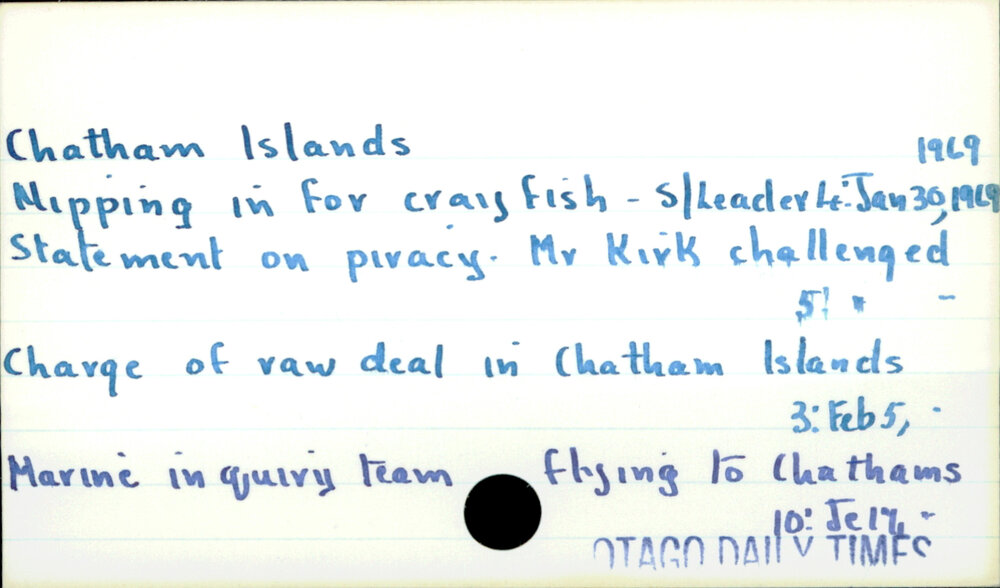 Chatham Islands 1969
Nipping in for crayfish - S/Leader 4: Jan 30, 1969
Statement on piracy. Mr Kirk challenged
5: " -
Charge of raw deal in Chatham Islands
3: Feb 5, -
Marine inquiry team flying to Chathams
10: Je 14, -
OTAGO DAILY TIMES